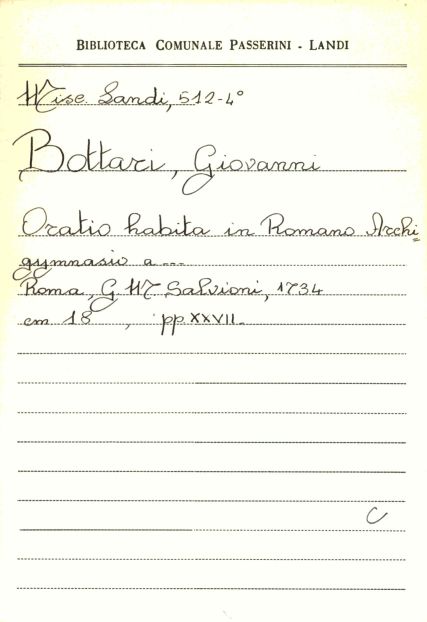 BIBLIOTECA COMUNALE PASSERINI - LANDI
Misc. Landi, 512-4°
Bottari, Giovanni
Oratio habita in Romano Archi=
gymnasio a ---
Roma, G. M. Salvioni, 1734
cm 18 , pp. XXVII.
C